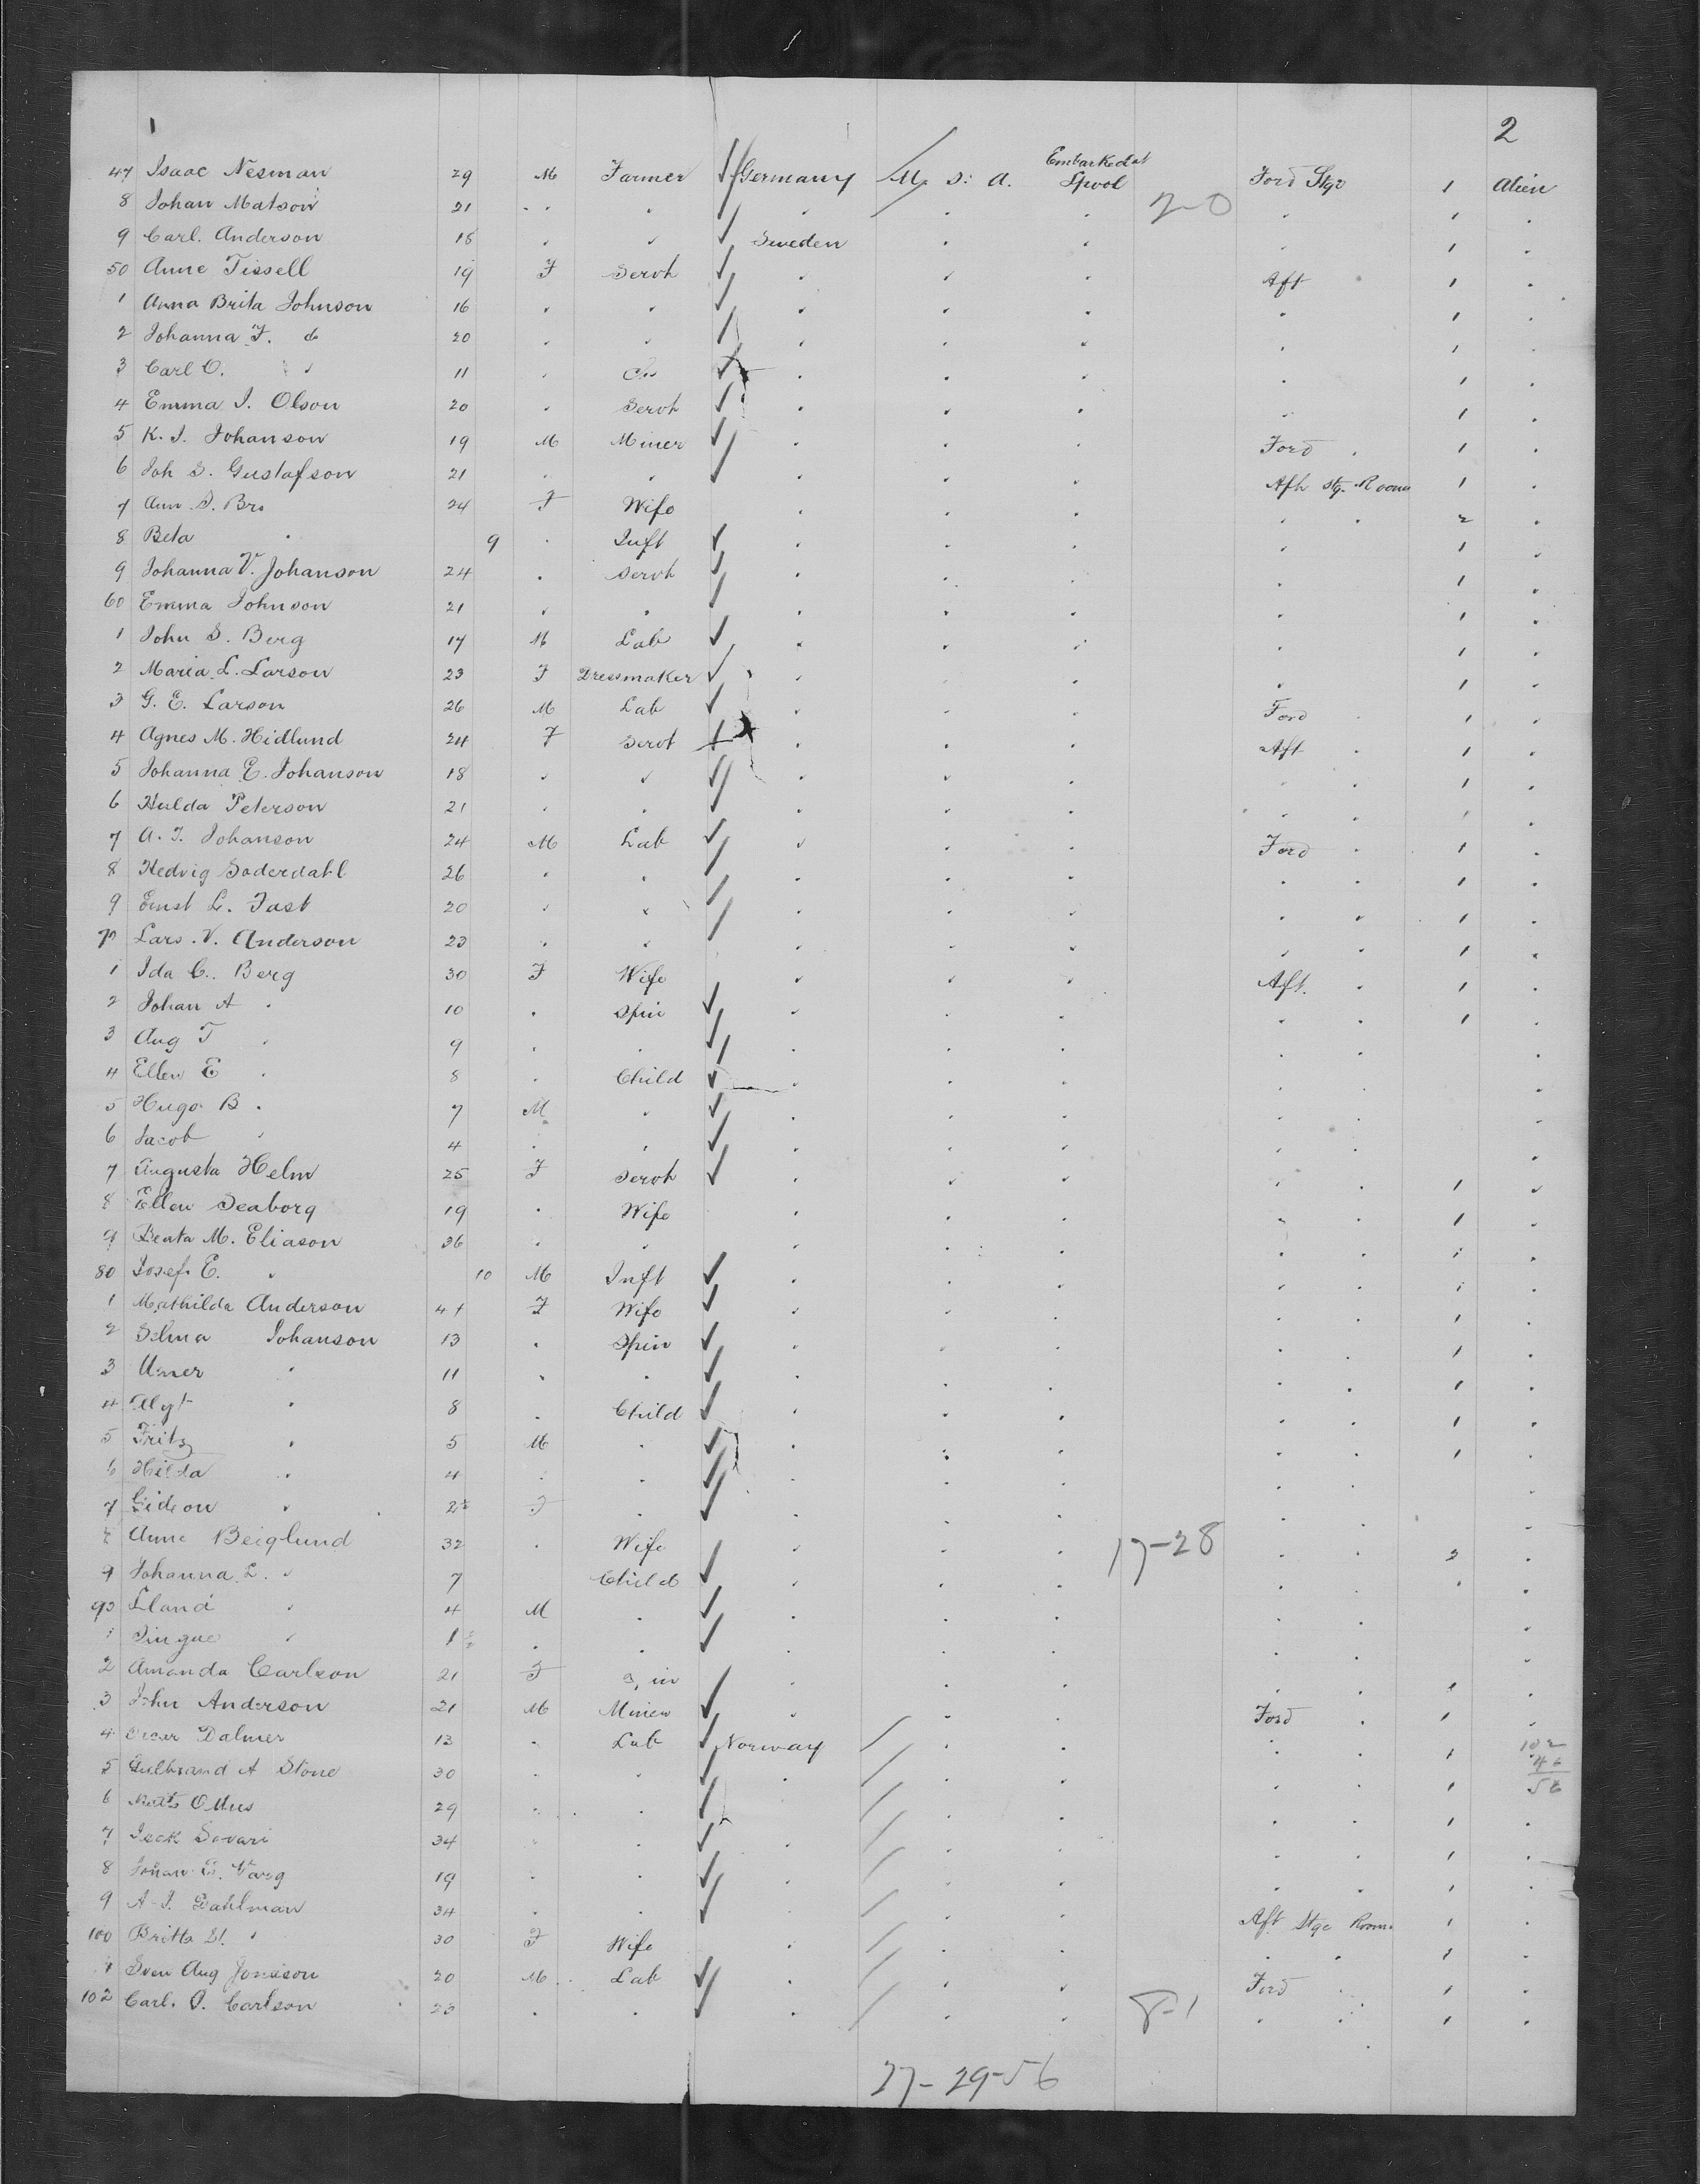 2
Embarked at
47 Isaac Nesman 29 M Farmer Germany U. S. A. Lpool Ford Stge 1 Alien
8 Johan Matson 21 " " " " " 2-0 " 1 "
9 Carl. Anderson 18 " " Sweden " " " 1 "
50 Anne Tissell 19 F Servt " " " Aft " 1 "
1 Anna Brita Johnson 16 " " " " " " 1 "
2 Johanna F. do 20 " " " " " " 1 "
3 Carl O. " 11 " " " " " 1 "
4 Emma J. Olson 20 " Servt " " " " 1 "
5 K. J. Johanson 19 M Miner " " " Ford " 1 "
6 Joh S. Gustafson 21 " " " " " Aft Stg. Room 1 "
7 Ann S. Bro 24 F Wife " " " " " 2 "
8 Beta " 9 " Inft " " " " 1 "
9 Johanna V. Johanson 24 " Servt " " " " 1 "
60 Emma Johnson 21 " " " " " " 1 "
1 John S. Berg 17 M Lab " " " " 1 "
2 Maria L. Larson 23 F Dressmaker " " " " 1 "
3 G. E. Larson 26 M Lab " " " Ford " 1 "
4 Agnes M. Hidlund 24 F Servt " " " Aft " 1 "
5 Johanna E. Johanson 18 " " " " " " " 1 "
6 Hulda Peterson 21 " " " " " " " 1 "
7 A. F. Johanson 24 M Lab " " " Ford " 1 "
8 Hedvig Soderdahl 26 " " " " " " " 1 "
9 Ernst L. Fast 20 " " " " " " " 1 "
70 Lars. V. Anderson 23 " " " " " " 1 "
1 Ida C. Berg 30 F Wife " " " Aft. " 1 "
2 Johan A " 10 " Spin " " " " " 1 "
3 Aug T " 9 " " " " " " " "
4 Ellen E " 8 " Child " " " " "
5 Hugo B " 7 M " " " " " " "
6 Jacob " 4 " " " " " " " "
7 Augusta Helm 25 F Servt " " " " " 1 "
8 Ellen Seaborg 19 " Wife " " " " " 1 "
9 Beata M. Eliason 36 " " " " " " " 1 "
80 Josef E. " 10 M Inft " " " " " 1 "
1 Mathilda Anderson 41 F Wife " " " " " 1 "
2 Selma Johanson 13 " Spin " " " " " 1 "
3 " 11 " " " " " " " 1 "
4 " 8 " Child " " " " " 1 "
5 Fritz " 5 M " " " " " " 1 "
6 Hilda " 4 " " " " " " " "
7 Gideon " 2 F " " " " " "
8 Anne Beiglund 32 " Wife " " " 17-28 " " 2 "
9 Johanna L. " 7 Child " " " " " "
90 " 4 M " " " " " " "
1 " 1 " " " " " " " "
2 Amanda Carlson 21 F " " " " " 1 "
3 John Anderson 21 M Miner " " " Ford " 1 "
4 Dalmer 13 " Lab Norway " " " " 1 102
5 Gulbrand A Stone 30 " " " " " " " 1 46
56
6 29 " " " " " " " 1 "
7 34 " " " " " " " 1 "
8 Johan 19 " " " " " " " 1 "
9 A. J. Dahlman 34 " " " " " Aft Stge Room 1 "
100 Britta " 30 F Wife " " " " " 1 "
1 Sven Aug Jonsson 20 M Lab " " " Ford " 1 "
102 Carl. O. Carlson 23 " " " " " 8-1 " " 1 "
27-29-56